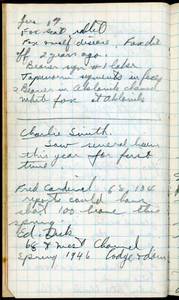 for
Fox
Fox disease. Fox die
off 2 years ago.
Beaver sign # 1 lake
Tapeworm segments in feces
2 Beaver in Aklavik channel
white fox at Aklavik
Charlie Smith.
Saw several bear
this year for first
time
Fred Cardinal 68, 134
reports could have
shot 100 beaver this
spring.
Ed. Lusk
68 & West Channel
Spring 1946 Lodge & dam